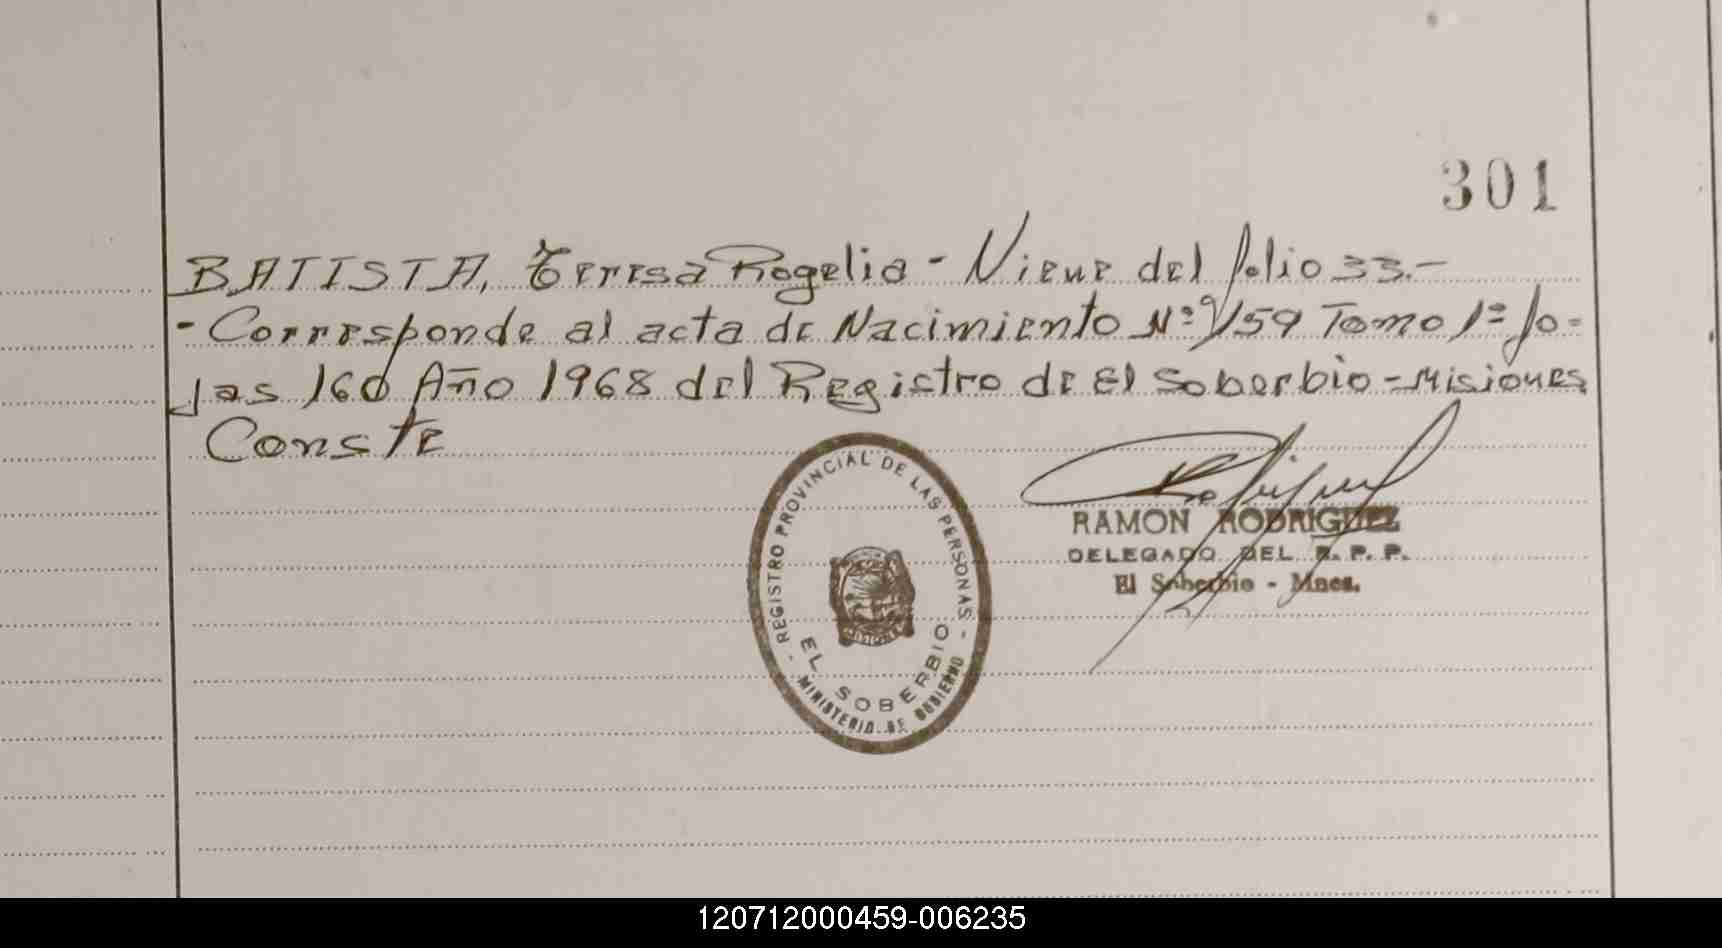 301
BATISTA, Teresa Rogelia - Viene del folio 33.-
- Corresponde al acta de Nacimiento Nº 159 Tomo 1º fo-
jas 160 Año 1968 del Registro de El Soberbio - Misiones
Conste
- REGISTRO PROVINCIAL DE LAS PERSONAS -
MISIONES
EL SOBERBIO
MINISTERIO DE GOBIERNO
RAMON RODRIGUEZ
DELEGADO DEL R. P. P.
El Soberbio - Mnes.
120712000459-006235